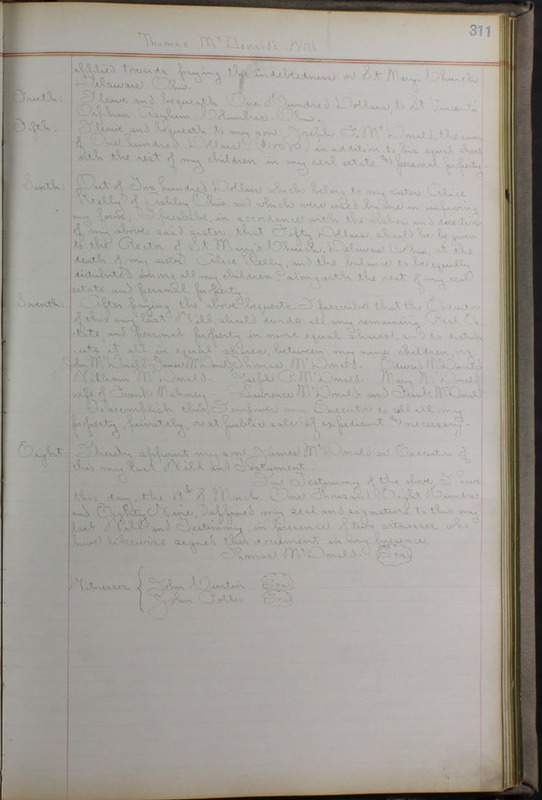 311
Thomas McDonald's Will
applied towards paying the indebtedness on St Marys Church
Delaware Ohio.
Fourth: I leave and bequeath One Hundred Dollars, to St Vincent's
Orphan Asylum Columbus Ohio.
Fifth. I leave and bequeath to my son, Joseph P. McDonald, the sum
of One hundred Dollars ($100.00) in addition to his equal share
with the rest of my children in my real estate & personal property.
Sixth: Out of Two hundred Dollars which belong to my sister Alice
Kelly of Ashley Ohio and which were used by me in improving
my farm, I prescribe, in accordance with the wishes and
of my above said sister, that Fifty Dollars, should be given
to the Rector of St Mary's Church, Delaware Ohio, at the
death of my sister Alice Kelly, and the balance to be equally
distributed among all my children, along with the rest of my real
estate and personal property
Seventh: After paying the above bequests I prescribe that the Executor
of this my last Will, should all my remaining Real Es-
tate, and personal property in nine equal shares, and to distrib-
ute it all in equal shares, between my nine children, viz:
John McDonald, James McDonald, Thomas McDonald. Edward McDonald
William McDonald. Joseph P. McDonald. Mary McDonald
wife of Frank Mahoney Lawrence McDonald, and Frank McDonald
To accomplish this I empower my Executor to sell all my
property, privately, or at public sale if expedient & necessary.
Eight I hereby appoint my son James McDonald as Executor of
this my last Will and Testament.
In Testimony of the above I have
this day, the 19th of March One Thousand Eight Hundred
and Eighty Nine, affixed my seal and signature to this my
last Will and Testimony, in presence of two witnesses who
have likewise signed this document in my presence.
Thomas McDonald. Seal
Witnesses { John Seal
John Cotter Seal